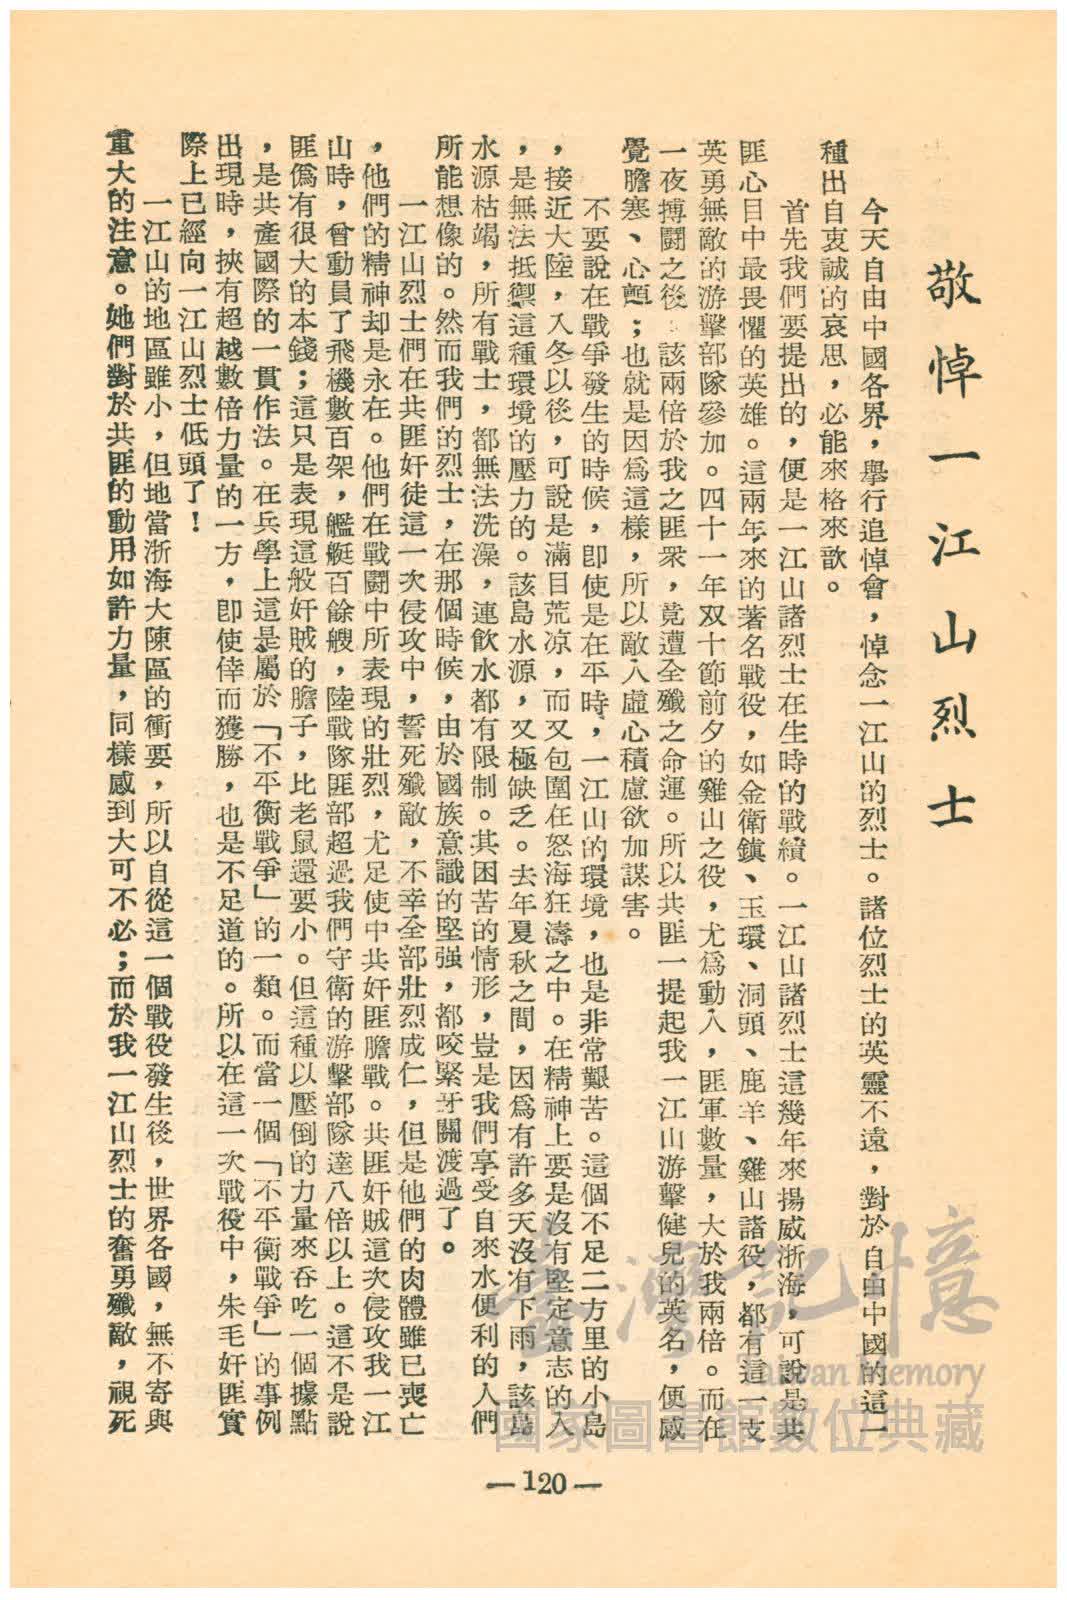 敬悼一江山烈士
今天自由中國各界，舉行追悼會，悼念一江山的烈士。諸位烈士的英靈不遠，對於自由中國的這一
種出自衷誠的哀思，必能來格來歆。
首先我們要提出的，便是一江山諸烈士在生時的戰績。一江山諸烈士這幾年來揚威浙海，可說是共
匪心目中最畏懼的英雄。這兩年來的著名戰役，如金衛鎮、玉環、洞頭、鹿羊、雞山諸役，都有這一支
英勇無敵的游擊部隊參加。四十一年双十節前夕的雞山之役，尤為動人，匪軍數量，大於我兩倍。而在
一夜搏鬪之後，該兩倍於我之匪衆，竟遭全殲之命運。所以共匪一提起我一江山游擊健兒的英名，便感
覺膽寒、心顫；也就是因為這樣，所以敵人處心積慮欲加謀害。
不要說在戰爭發生的時候，即使是在平時，一江山的環境，也是非常艱苦。這個不足二方里的小島
，接近大陸，入冬以後，可說是滿目荒凉，而又包圍在怒海狂濤之中。在精神上要是沒有堅定意志的人
，是無法抵禦這種環境的壓力的。該島水源，又極缺乏。去年夏秋之間，因為有許多天沒有下雨，該島
水源枯竭，所有戰士，都無法洗澡，連飲水都有限制。其困苦的情形，豈是我們享受自來水便利的人們
所能想像的。然而我們的烈士，在那個時候，由於國族意識的堅强，都咬緊牙關渡過了。
一江山烈士們在共匪奸徒這一次侵攻中，誓死殲敵，不幸全部壯烈成仁，但是他們的肉體雖已喪亡
，他們的精神却是永在。他們在戰鬪中所表現的壯烈，尤足使中共奸匪膽戰。共匪奸賊這次侵攻我一江
山時，曾動員了飛機數百架，艦艇百餘艘，陸戰隊匪部超過我們守衛的游擊部隊達八倍以上。這不是說
匪僞有很大的本錢；這只是表現這般奸賊的膽子，比老鼠還要小。但這種以壓倒的力量來吞吃一個據點
，是共產國際的一貫作法。在兵學上這是屬於「不平衡戰爭」的一類。而當一個「不平衡戰爭」的事例
出現時，挾有超越數倍力量的一方，即使倖而獲勝，也是不足道的。所以在這一次戰役中，朱毛奸匪實
際上已經向一江山烈士低頭了！
一江山的地區雖小，但地當浙海大陳區的衝要，所以自從這一個戰役發生後，世界各國，無不寄與
重大的注意。她們對於共匪的動用如許力量，同樣感到大可不必；而於我一江山烈士的奮勇殲敵，視死
—120—
臺灣記憶
Taiwan Memory
國家圖書館數位典藏